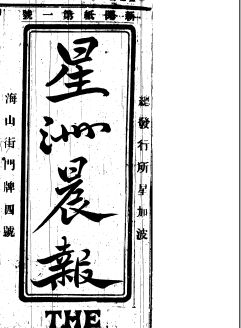 新聞紙第一號
總發行所星加波
星洲晨報
海山街門牌四號
THE